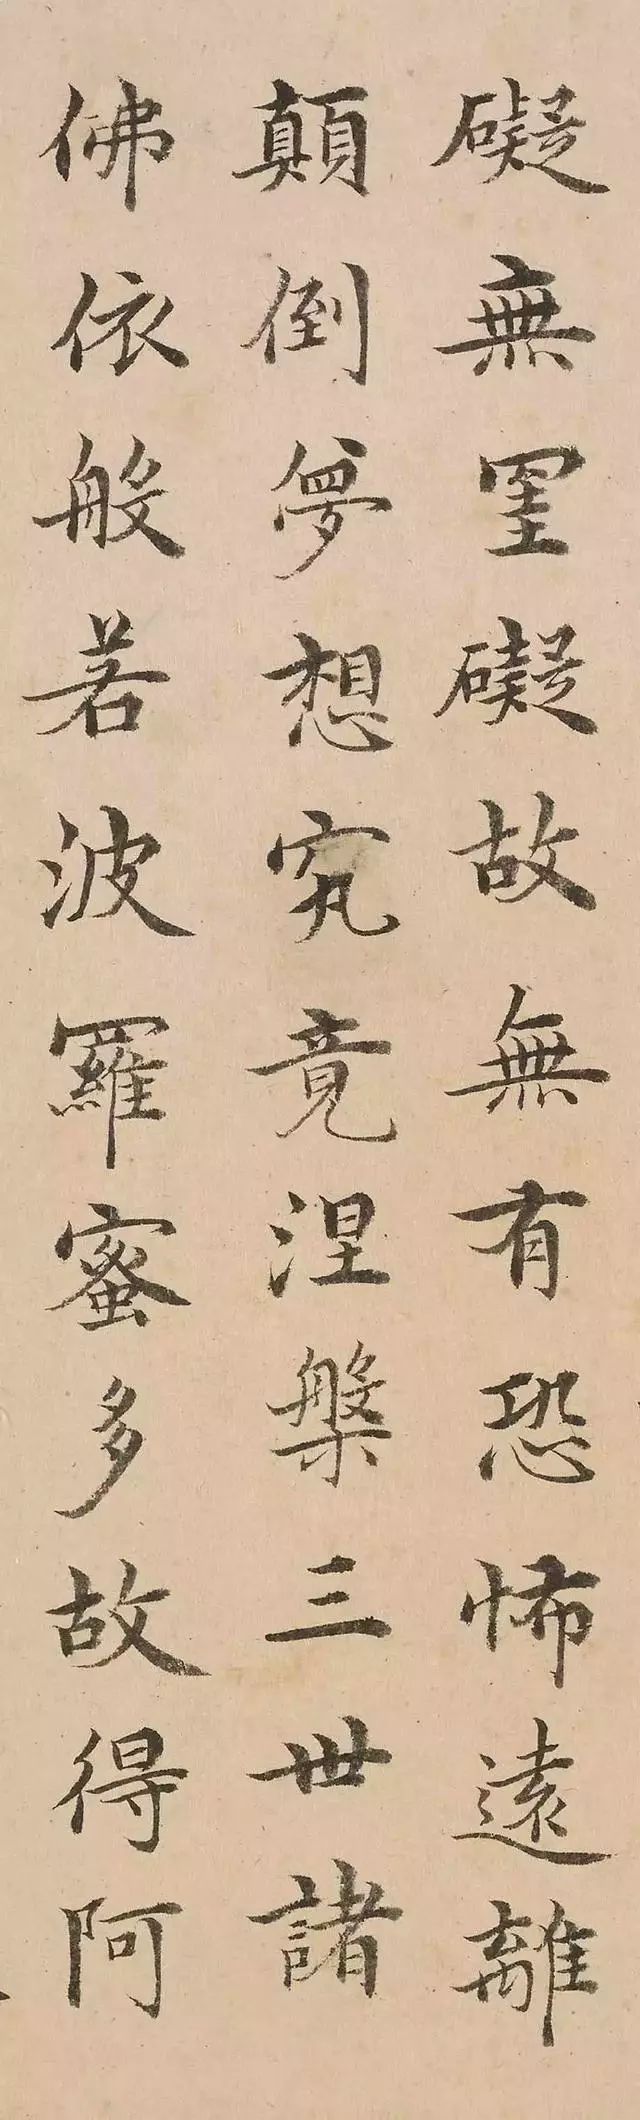 礙無罣礙故無有恐怖遠離
顛倒夢想究竟涅槃三世諸
佛依般若波羅蜜多故得阿